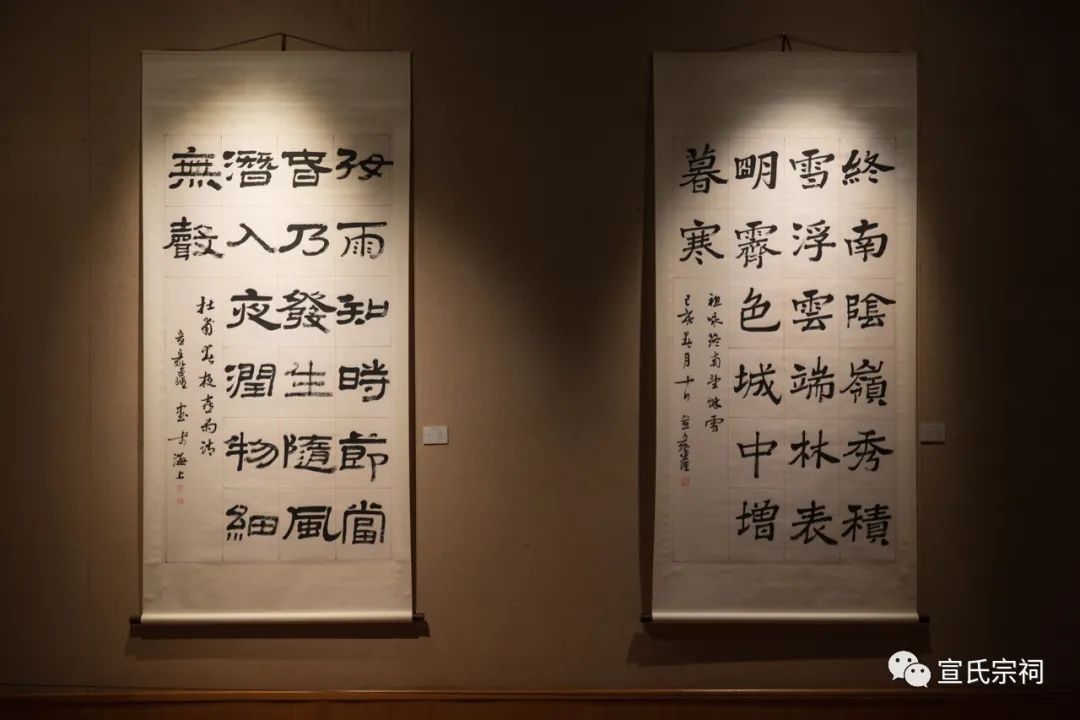 好雨知時節當
春乃發生隨風
潛入夜潤物細
無聲
杜甫春夜喜雨詩
宣家鑫書於海上
終南陰嶺秀積
雪浮雲端林表
明霽色城中增
暮寒
祖詠終南望餘雪
己亥春月十日宣家鑫
宣氏宗祠